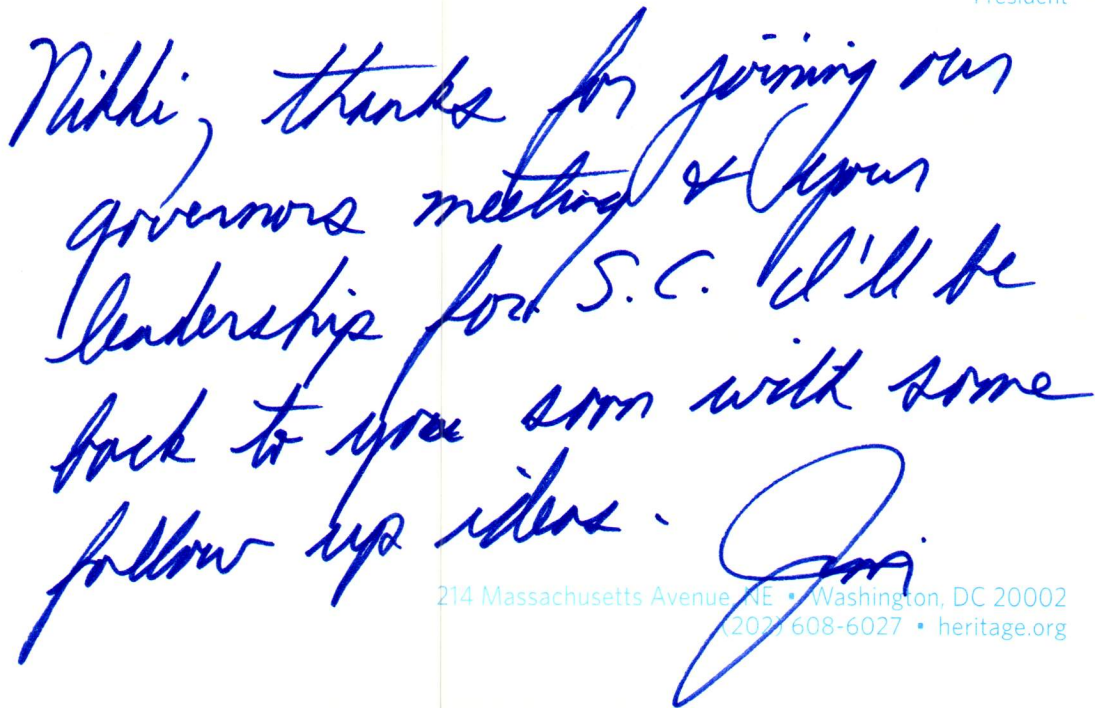 President
Nikki, thanks for joining our
governors meeting & your
leadership for S.C. I'll be
back to you soon with some
follow up ideas.
Jim
214 Massachusetts Avenue, NE • Washington, DC 20002
(202) 608-6027 • heritage.org